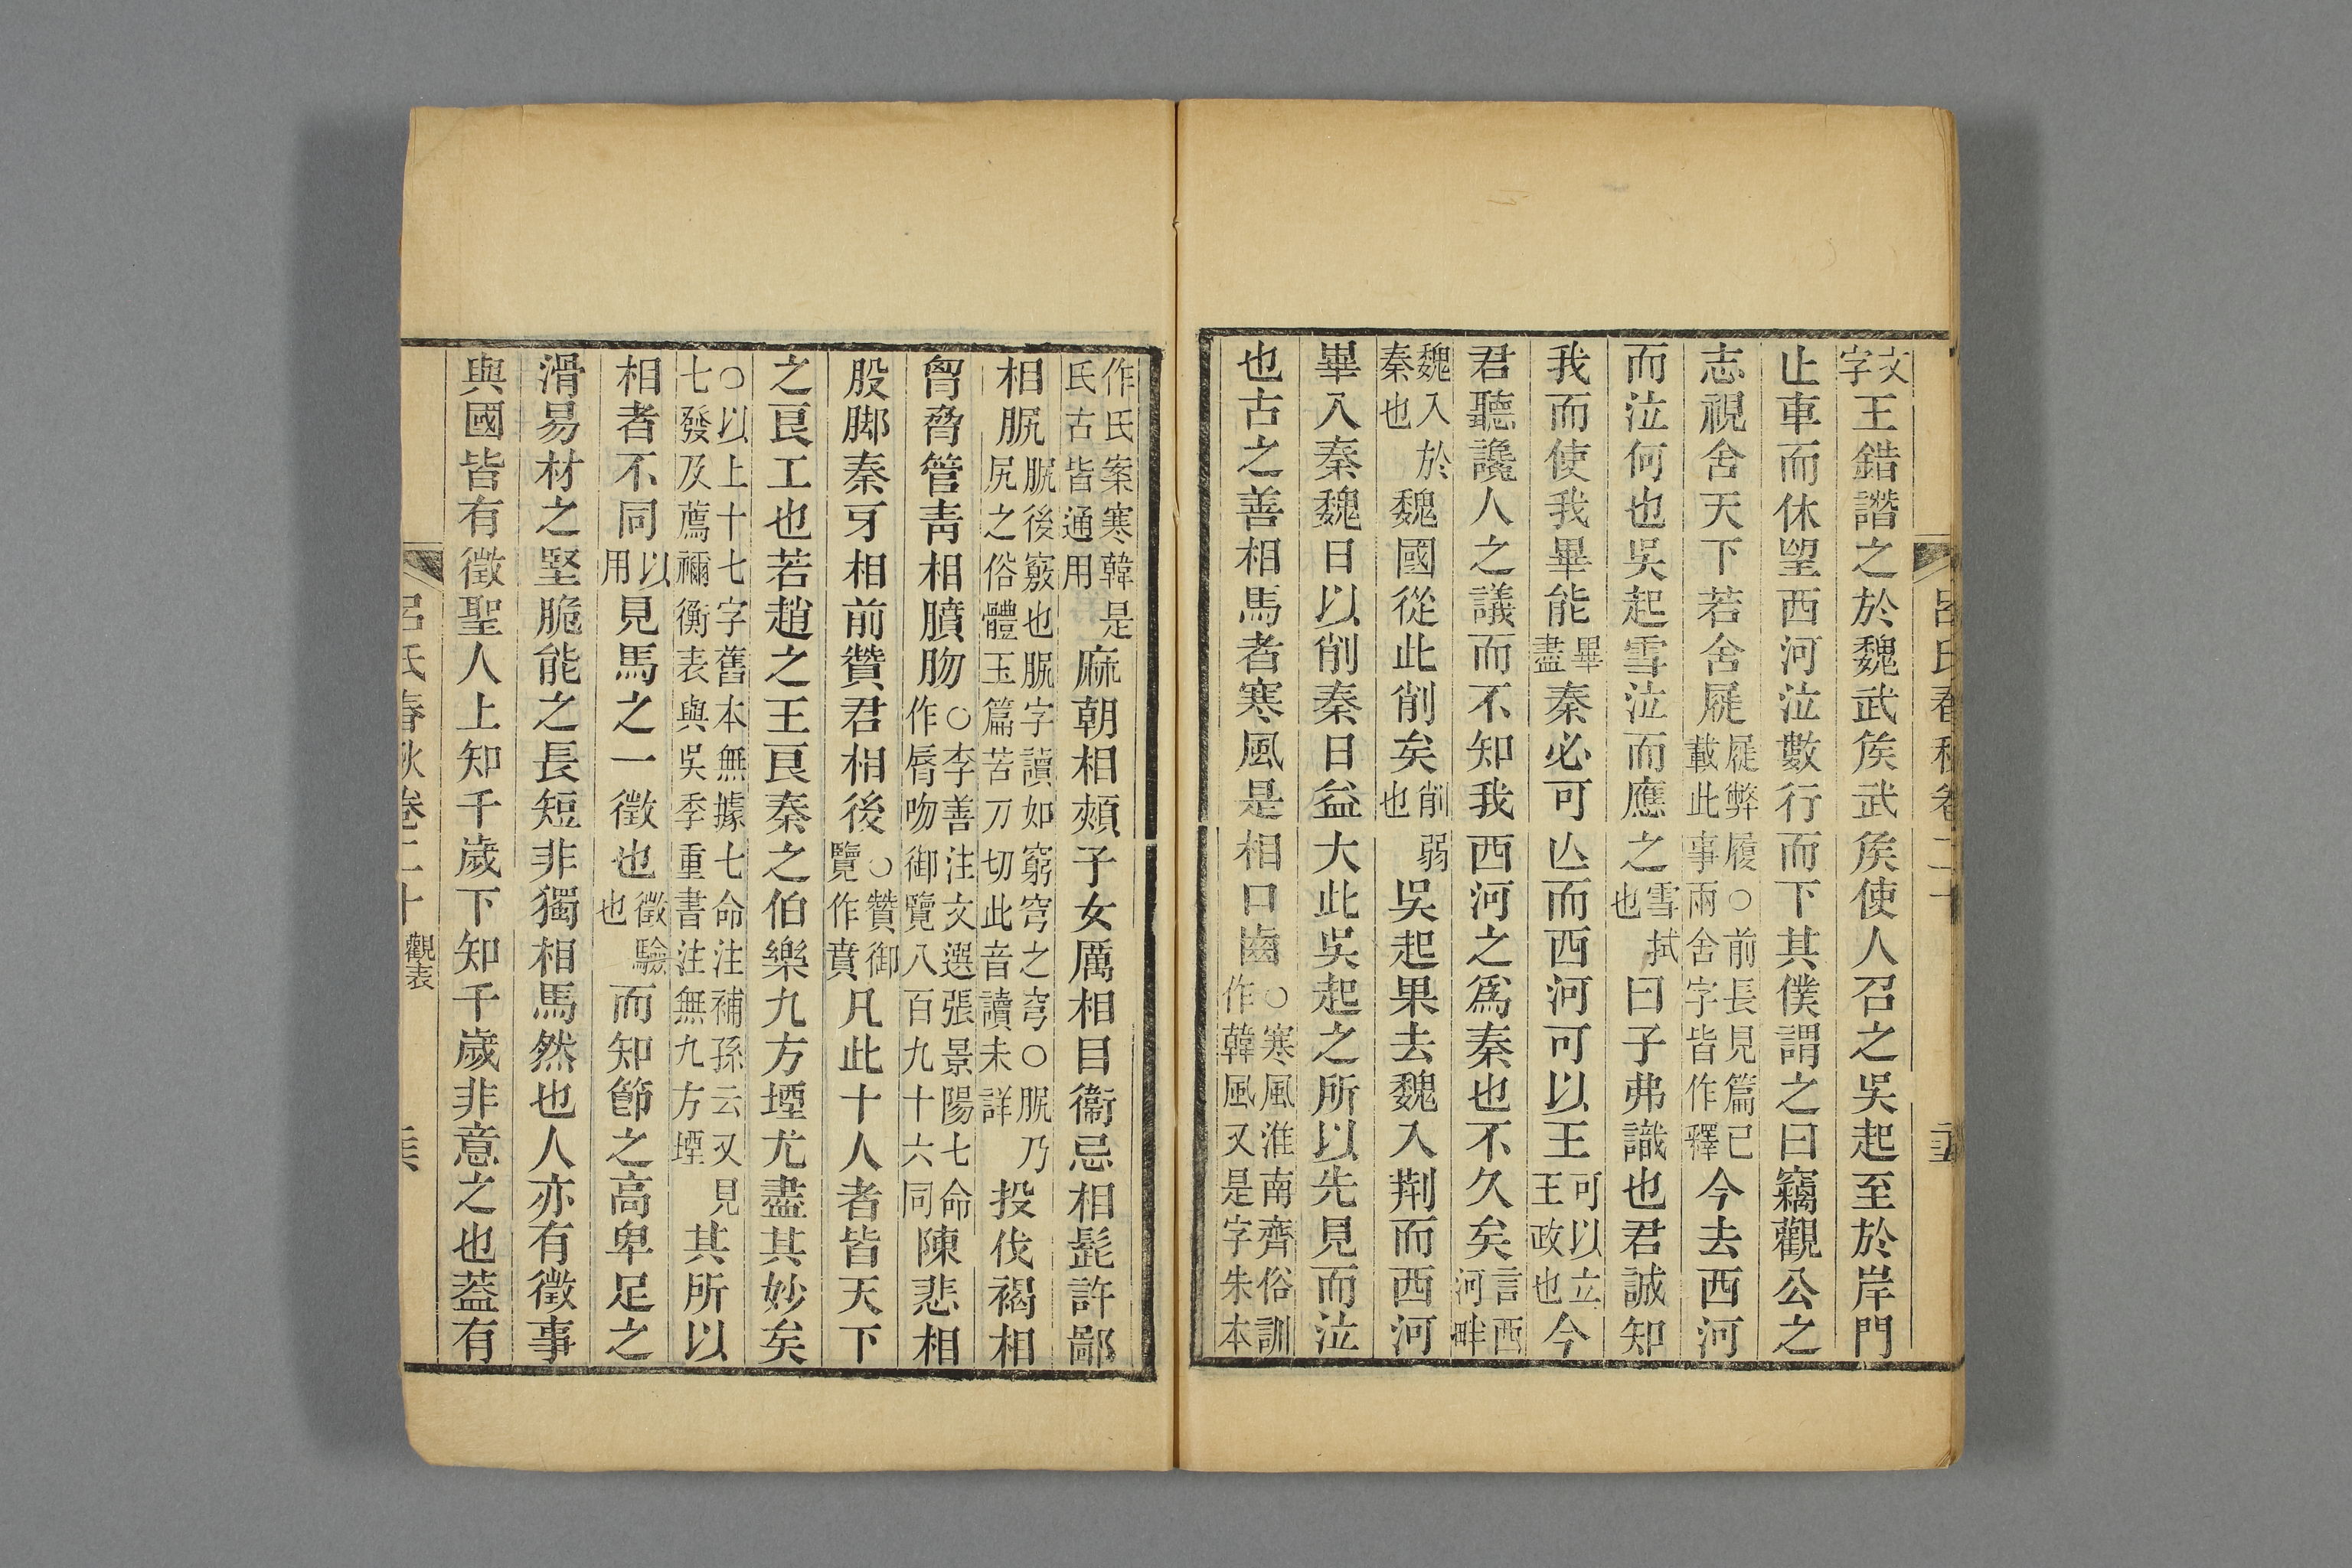 呂氏春秋卷二十
文字王錯譖之於魏武矦武矦使人召之吳起至於岸門
止車而休望西河泣數行而下其僕謂之曰竊觀公之
志視舍天下若舍屣屣弊履○前長見篇已載此事兩舍字皆作釋今去西河
而泣何也吳起雪泣而應之雪拭也曰子弗識也君誠知
我而使我畢能畢盡秦必可亾而西河可以王可以立王政也今
君聽讒人之議而不知我西河之爲秦也不久矣言西河畔
魏入於秦也魏國從此削矣削弱也吳起果去魏入荆而西河
畢入秦魏日以削秦日益大此吳起之所以先見而泣
也古之善相馬者寒風是相口齒○寒風淮南齊俗訓作韓風又是字朱本
作氏案寒韓是氏古皆通用麻朝相頰子女厲相目衞忌相髭許鄙
相𦞠𦞠後竅也𦞠字讀如窮穹之穹○𦞠乃尻之俗體玉篇苦刀切此音讀未詳投伐褐相
胷脅管靑相膹肳○李善注文選張景陽七命作脣吻御覽八百九十六同陳悲相
股脚秦牙相前贊君相後○贊御覽作賁凡此十人者皆天下
之良工也若趙之王良秦之伯樂九方堙尤盡其妙矣
○以上十七字舊本無據七命注補孫云又見七發及薦禰衡表與吳季重書注無九方堙其所以
相者不同以用見馬之一徵也徵驗也而知節之高卑足之
滑易材之堅脆能之長短非獨相馬然也人亦有徵事
與國皆有徵聖人上知千歲下知千歲非意之也葢有
呂氏春秋卷二十
觀表